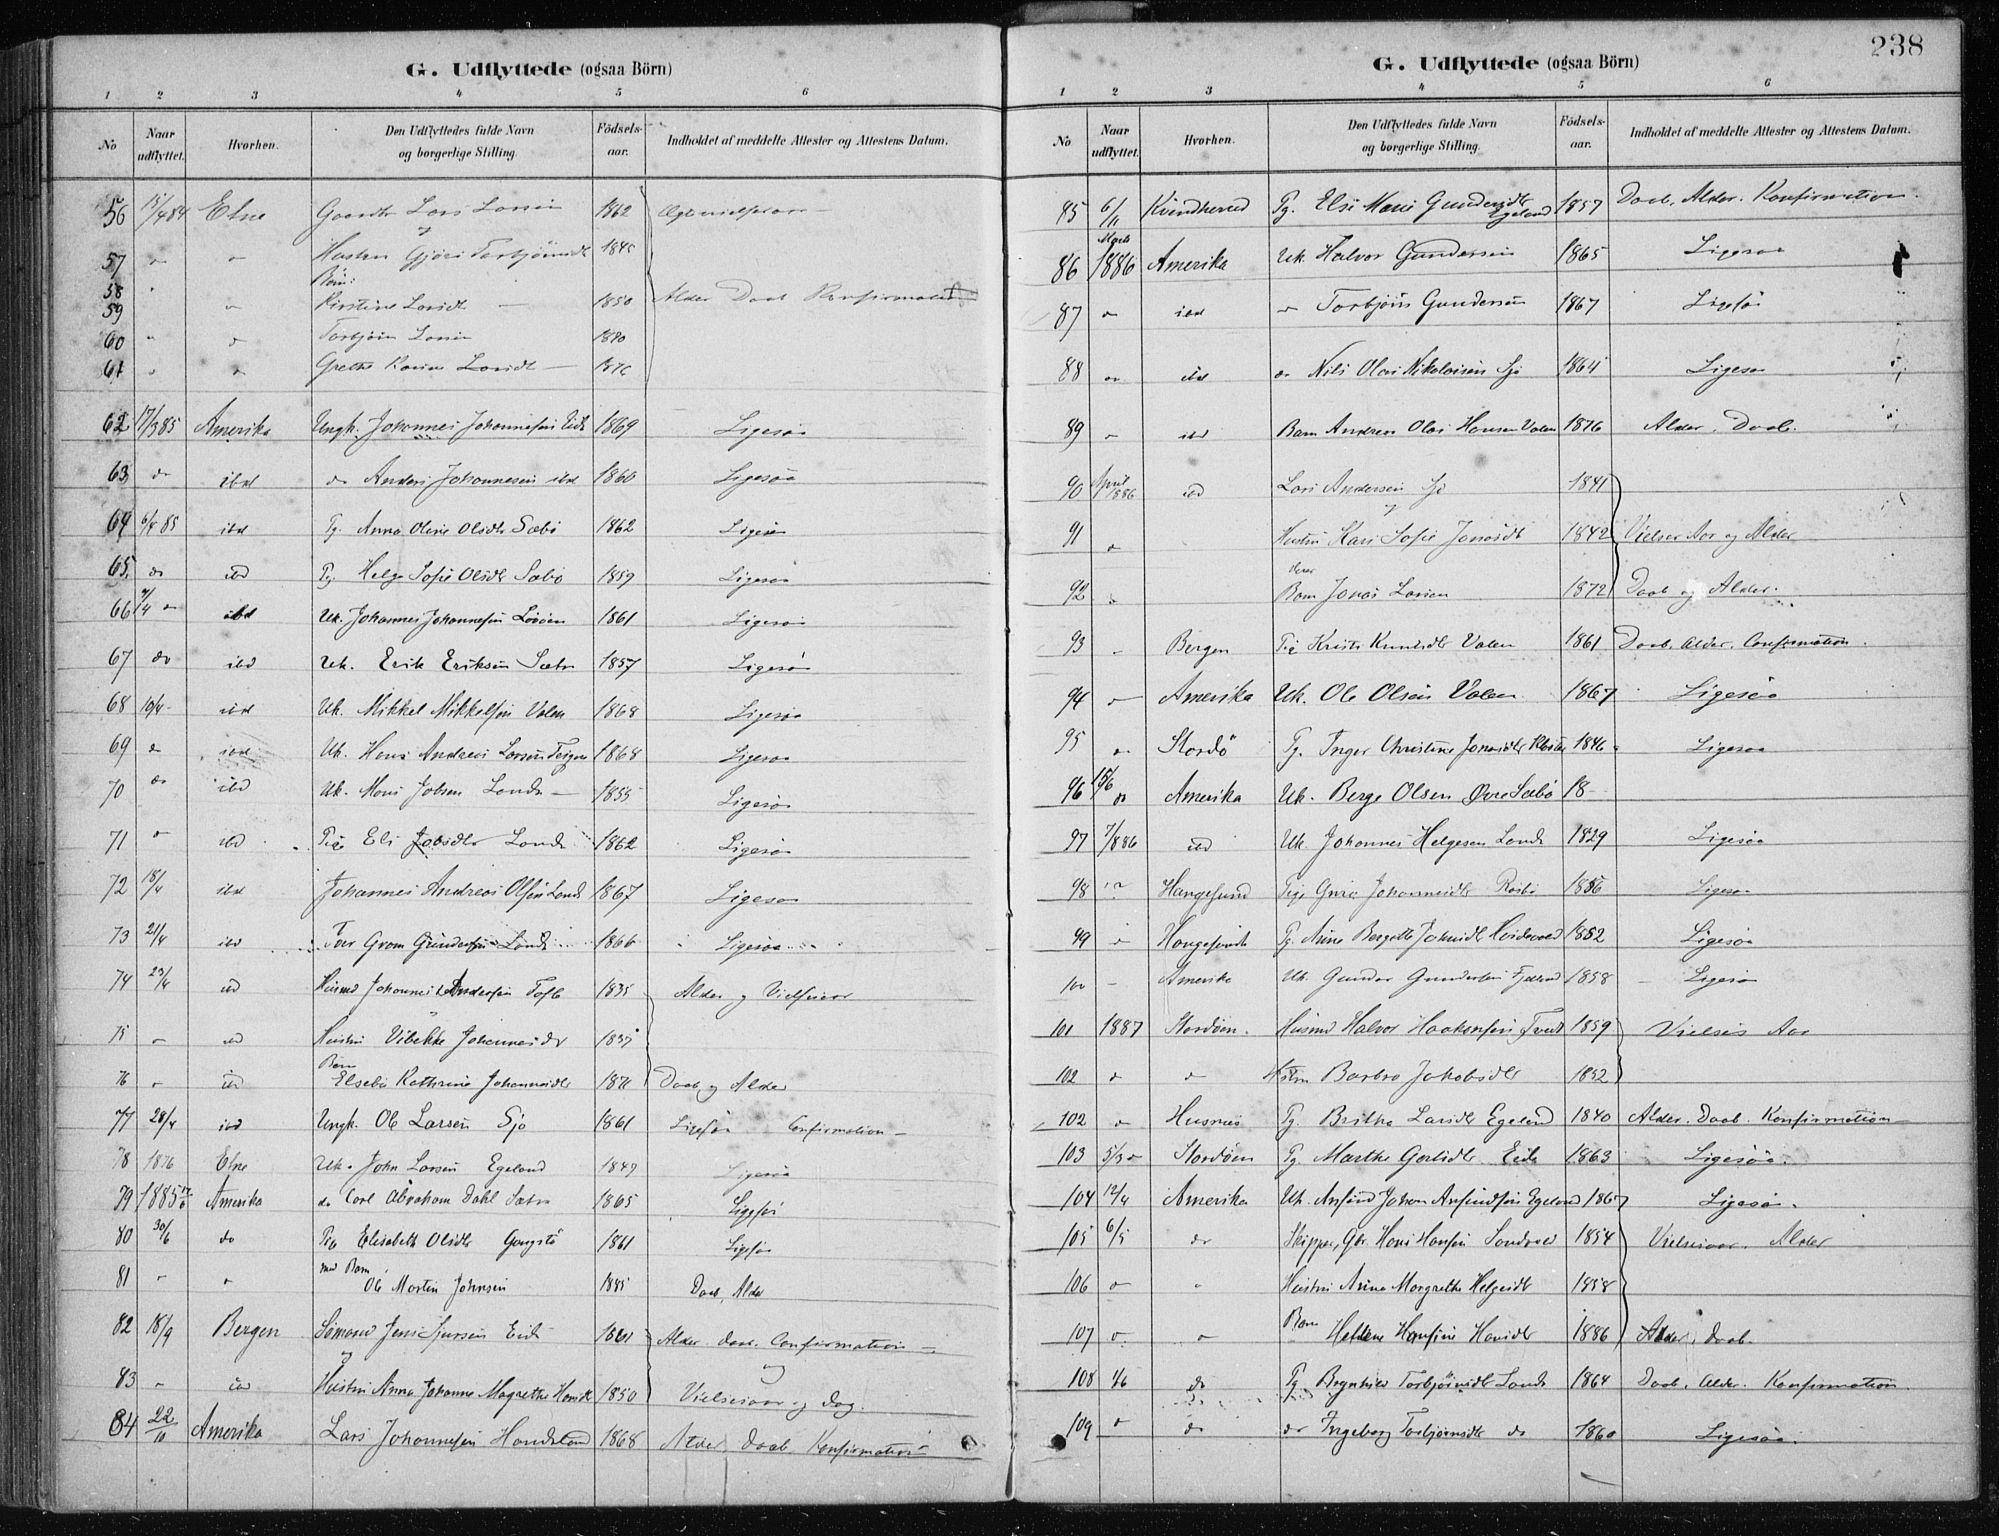 238
G. Udflyttede (ogsaa Börn)
1 2 3 4 5 6
No
Naar udflyttet.
Hvorhen.
Den Udflyttedes fulde Navn og borgerlige Stilling.
Födsels-aar.
Indholdet af meddelte Attester og Attestens Datum.
56 15/4 84 Etne Lars Larsen 1862
57 Hustru Torbjörnsdt 1845
58 Börn:
59 Kirstine Larsdt 1850 Alder Daab Konfirmation
60 Torbjörn Larsen 1880
61 Grethe Karine Larsdt 1876
62 17/3 85 Amerika Ungk. Johannes Johannesen Eide 1869 Ligesaa
63 do ibd do Anders Johannesen ibd 1860 Ligesaa
64 6/4 85 ibd Pg. Anna Oline Olsdtr Sæbö 1862 Ligesaa
65 do ibd Pg. Helga Sofie Olsdtr Sæbö 1859 Ligesaa
66 9/4 do ibd Uk. Johannes Johannesen 1861 Ligesaa
67 do ibd Uk. Erik Eriksen Sætre 1857 Ligesaa
68 10/4 ibd Uk. Mikkel Mikkelsen Valen 1868 Ligesaa
69 do ibd Uk. Hans Andreas Larsen 1868 Ligesaa
70 do ibd Uk. Mons Jobsen Lande 1855 Ligesaa
71 do ibd Pige Eli Jobsdtr Lande 1862 Ligesaa
72 18/4 ibd Johannes Andreas Olsen Lande 1867 Ligesaa
73 21/4 ibd Gundersen Lande 1866 Ligesaa
74 23/4 ibd Husmd Johannes Andersen Tofte 1835 Alder og Vielsesaar
75 ibd Hustru Vibekke Johannesdr 1837
76 ibd Barn Elsebe Kathrine Johannesdtr 1871 Daab og Alder
77 28/4 ibd Ungk. Ole Larsen Sjo 1861 Ligesaa Confirmation
78 1876 Etne Uk. John Larsen Egeland 1849 Ligesaa
79 1885 Amerika do Carl Abraham Dahl Sætre 1865 Ligesaa
80 30/6 do Pige Elisabeth Olsdtr 1861 Ligesaa
81 med Barn Ole Martin Johnsen 1885 Daab, Alder
82 18/9 Bergen Sömand Jens Sjursen Eide Alder. Daab. Confirmation
83 ibd Hustru Anna Johanne Magrethe Hansdt 1850 og Vielsesaar og Dag.
84 22/10 Amerika Lars Johannesen Handeland 1868 Alder Daab Konfirmation
G. Udflyttede (ogsaa Börn)
1 2 3 4 5 6
No
Naar udflyttet.
Hvorhen.
Den Udflyttedes fulde Navn og borgerlige Stilling.
Födsels-aar.
Indholdet af meddelte Attester og Attestens Datum.
85 6/11 Kvindherred Pg. Else Marie Gundersdtr Egeland 1857 Daab, Alder. Konfirmation.
86 Marts 1886 Amerika Uk. Halvor Gundersen 1865 Ligesaa
87 do ibd do Torbjörn Gundersen 1867 Ligesaa
88 do ibd do Nils Olai Nikolaisen Sjo 1864 Ligesaa
89 ibd Barn Andreas Olai Hansen Valen 1876 Alder. Daab.
90 April 1886 ibd Lars Andersen Sjo 1841
91 og Hustru Kari Sofie Jonasdt 1842 Vielses Aar og Alder
92 deres Barn Jonas Larsen 1872 Daab og Alder.
93 Bergen Pige Kristi Knudsdtr Valen 1861 Daab. Alder. Confirmation.
94 Amerika Uk. Ole Olsen Valen 1867 Ligesaa
95 do Stordö Pg. Inger Christine Jonasdtr 1846 Ligesaa
96 do Amerika Uk. Berge Olsen Övre Sæbö 18
97 7/8 86 ibd Uk. Johannes Helgesen Lande 1829 Ligesaa
98 Haugesund Pige Johannesdtr 1856 Ligesaa
99 do Haugesund Pg. Anne Bergitte 1852 Ligesaa
100 Amerika Uk. Gunder Gundersen 1858 Ligesaa
101 1887 Stordöen. Husmd Halvor Haakonsen Tveit 1859 Vielses Aar
102 do do Hustru Barbro Jakobsdtr 1852
102 do Husnes Pg. Britha Larsdtr Egeland 1840 Alder. Daab. Konfirmation
103 5/3 Stordöen Pg. Marthe Eide 1863 Ligesaa.
104 12/4 Amerika Uk. Anfind Johan Anfindsen Egeland 1867 Ligesaa.
105 6/5 do Skipper, Gbr. Hans Hansen Sandvold 1854 Vielsesaar. Alder
106 do Hustru Anna Margrethe Helgesdtr 1858
107 do Barn Helene Hansine Hansdtr 1886 Alder, Daab.
108 4/6 do Pg. Brynhild Torbjörnsdtr Lande 1864 Daab, Alder. Konfirmation.
109 do do do Ingeborg Torbjörnsdtr do 1860 Ligesaa.